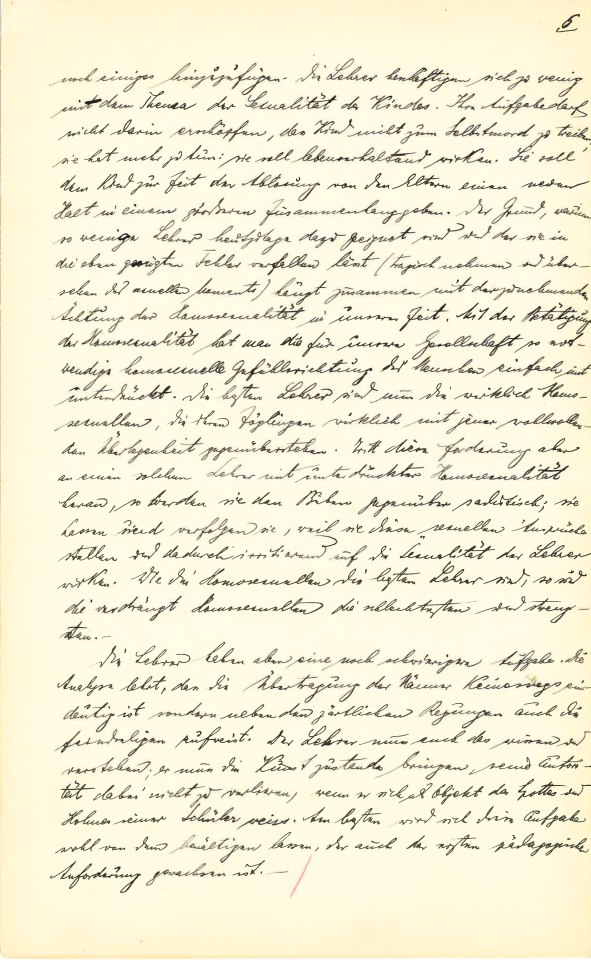 5
noch einiges hinzuzufügen. Die Lehrer beschäftigen sich zu wenig
mit dem Thema der Sexualität des Kindes. Ihre Aufgabe darf
nicht darin erschöpfen, das Kind nicht zum Selbstmord zu treiben,
sie hat mehr zu tun: sie soll lebenserhaltend wirken. Sie soll
dem Kind zur Zeit der Ablösung von den Eltern einen neuen
Halt in einem größeren Zusammenhang geben. Der Grund, warum
so wenige Lehrer heutzutage dazu geeignet sind und der sie in
die eben gezeigten Fehler verfallen lässt (tragisch nehmen od über-
sehen des sexuellen Moments) hängt zusammen mit der zunehmenden
Ächtung der Homosexualität in unserer Zeit. Mit der Betätigung
der Homosexualität hat man die für unsere Gesellschaft so not-
wendige homosexuelle Gefühlsrichtung des Menschen einfach mit
unterdrückt. Die besten Lehrer sind nun die wirklich Homo-
sexuellen, die ihren Zöglingen wirklich mit jener wohlwollen-
den Überlegenheit gegenüberstehen. Tritt diese Forderung aber
an einen solchen Lehrer mit unterdrückter Homosexualität
heran, so werden sie den Buben gegenüber sadistisch; sie
hassen sie und verfolgen sie, weil sie diese „sexuellen" Ansprüche
stellen und dadurch irritierend auf die Sexualität der Lehrer
wirken. Wie die Homosexuellen die besten Lehrer sind, so sind
die verdrängt Homosexuellen die schlechtesten und streng-
sten.—
Die Lehrer haben aber eine noch schwierigere Aufgabe. Die
Analyse lehrt, das die Übertragung der Männer keineswegs ein-
deutig ist sondern neben den zärtlichen Regungen auch die
feindseligen aufweist. Der Lehrer muss auch das wissen und
verstehen; er muss die Kunst zustande bringen, seine Autori-
tät dabei nicht zu verlieren, wenn er sich als Objekt des Spottes und
Hohnes seiner Schüler weiss. Am besten wird sich diese Aufgabe
wohl von dem bewältigen lassen, der auch der ersten pädagogischen
Anforderung gewachsen ist.—